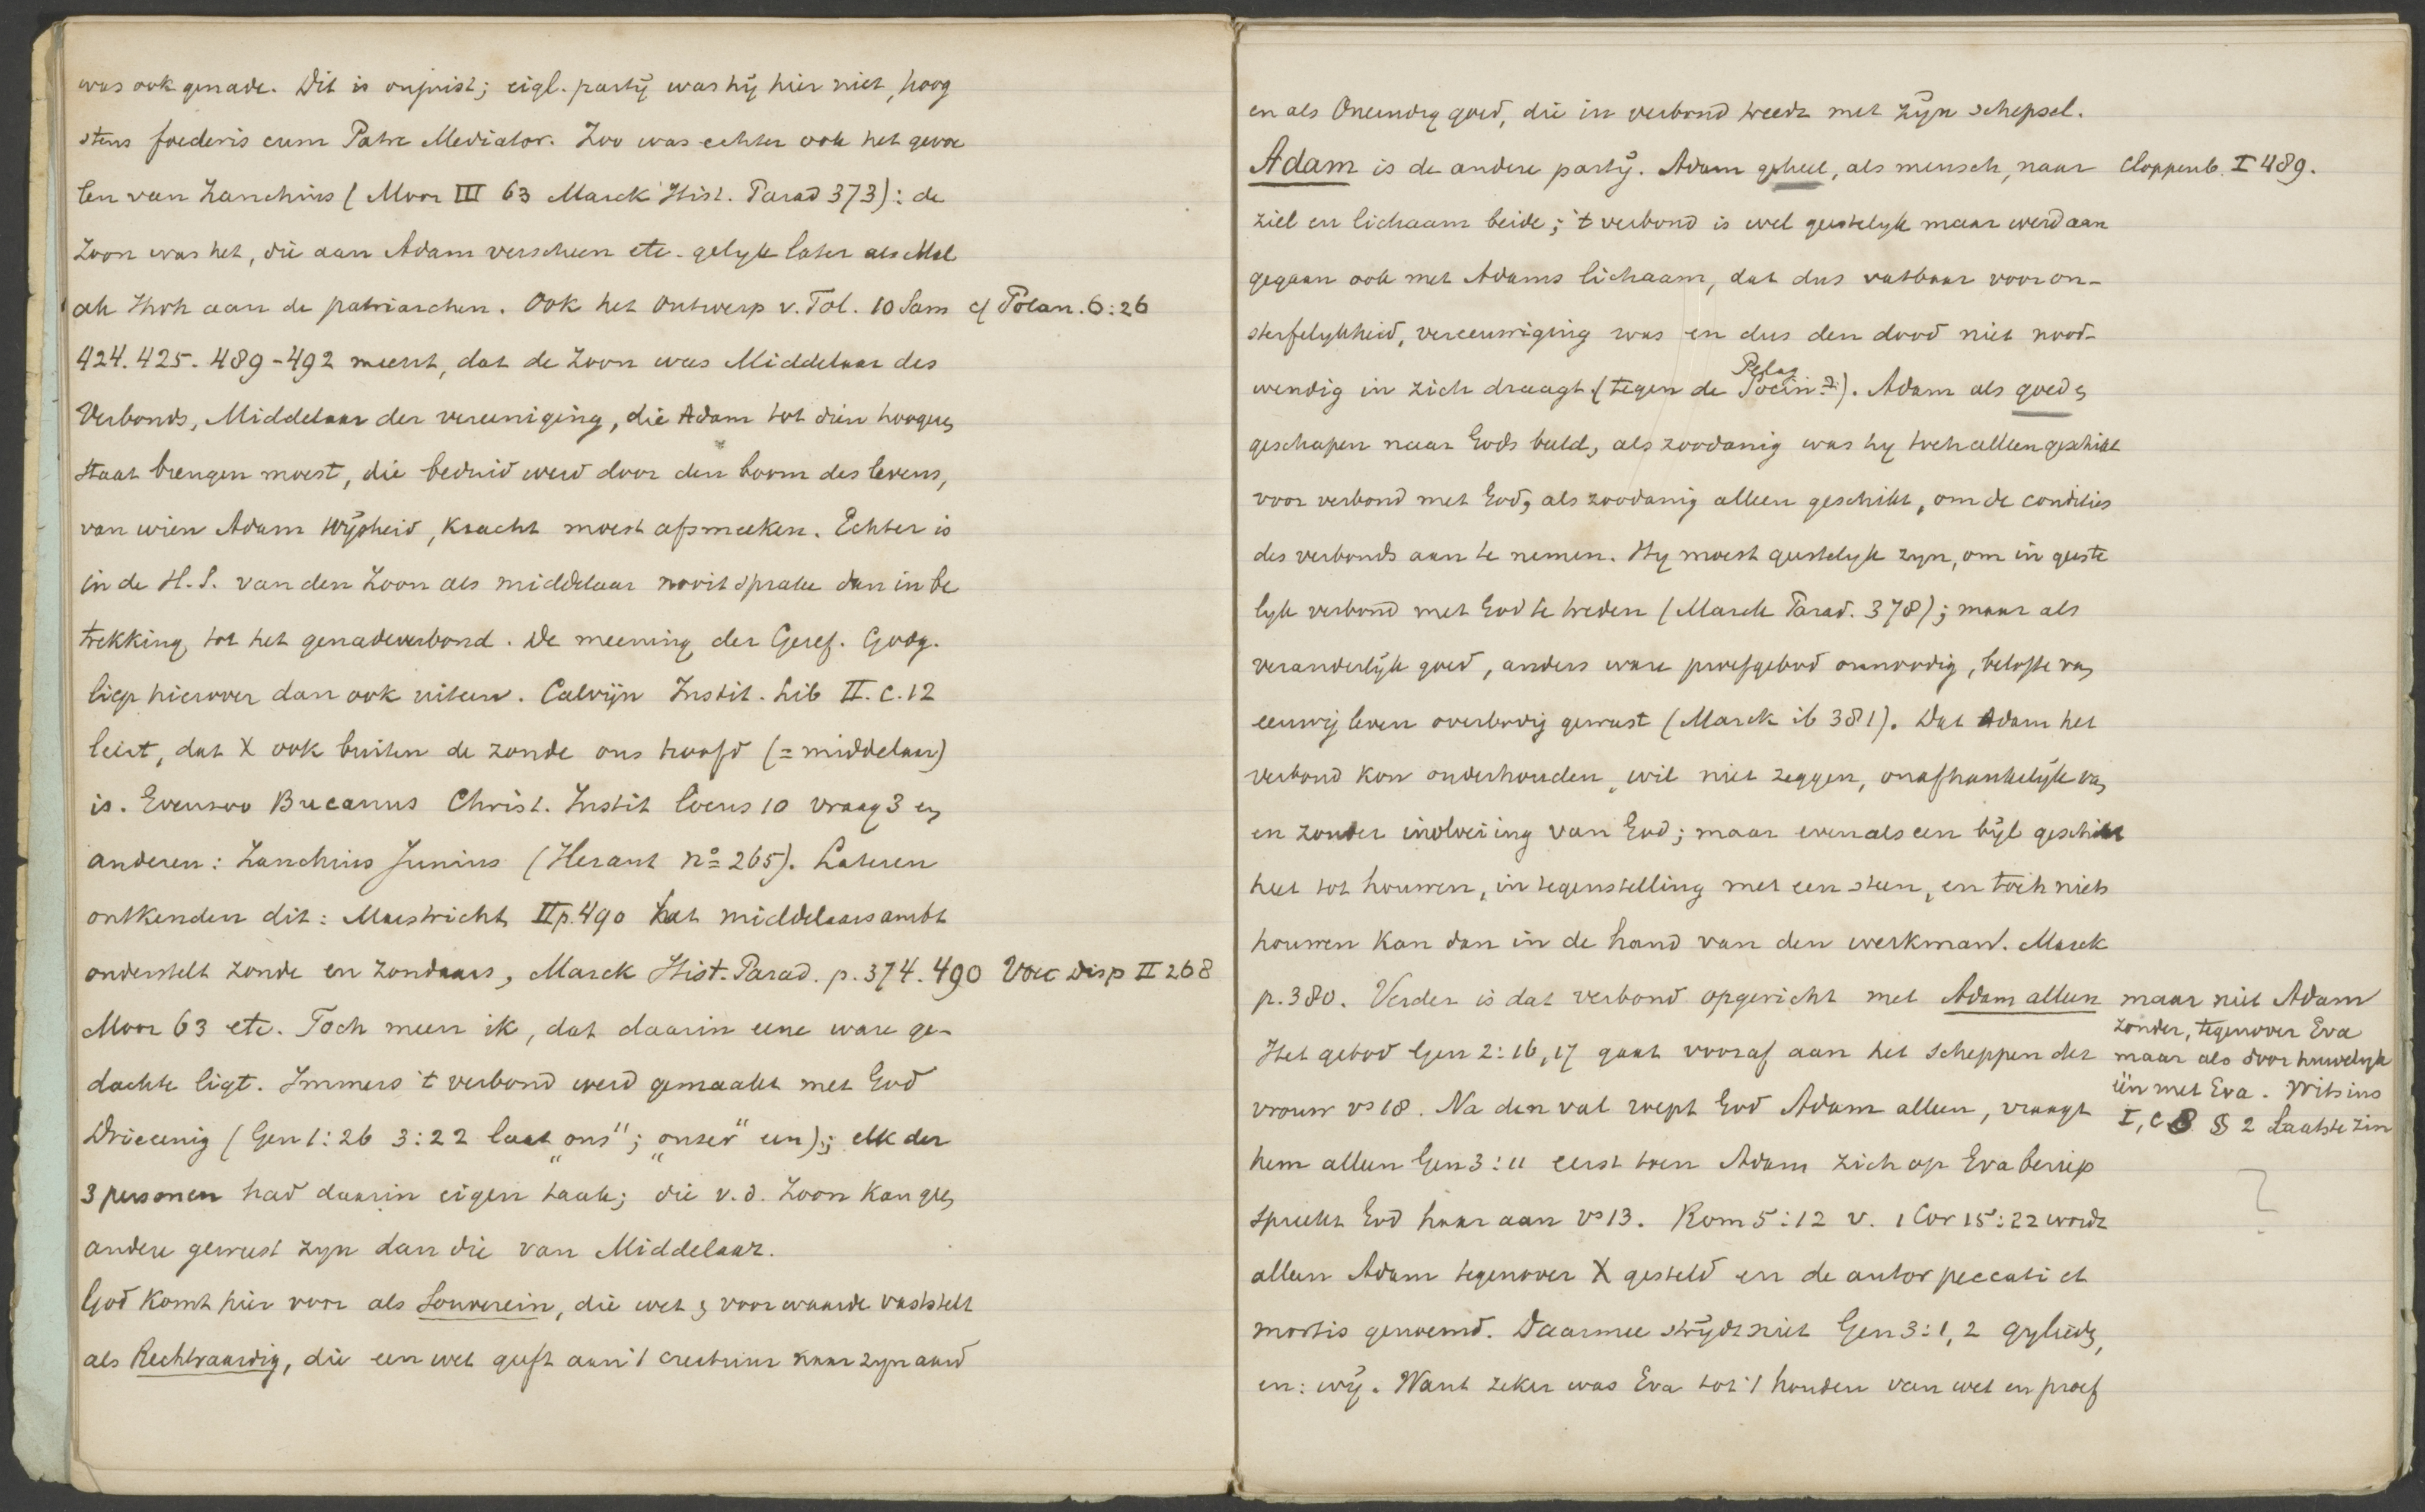 was ook genade. Dit is onjuist; eigl. partij was hij hier niet, hoog
stens foederis cum Patre Mediator. Zoo was echter ook het gevoe
len van Zanchius (Moor III 63 Marck Hist. Parad 373): de
Zoon was het, die aan Adam verscheen etc. gelyk later als Mal
ak Jhvh aan de patriarchen. Ook het Ontwerp v. Tol. 10 Sam cf Polan. 6:26
424. 425. 489-492 meent, dat de Zoon was Middelaar des
Verbonds, Middelaar der vereeniging, die Adam tot dien hoogeren
Staat brengen moest, die beduid werd door den boom des levens,
van wien Adam wijsheid, kracht moest afsmeeken. Echter is
in de H.S. van den Zoon als middelaar nooit sprake dan in be
trekking tot het genadeverbond. De meening der Geref. Godg.
liep hierover dan ook uiteen. Calvijn Instit. Lib II. c. 12
leert, dat X ook buiten de zonde ons hoofd (= middelaar)
is. Evenzoo Bucanus Christ. Instit locus 10 vraag 3 en
anderen: Zanchius Junius (Heraut no 265). Lateren
ontkenden dit: Mastricht II p. 490 het middelaarsambt
onderstelt zonde en zondaars, Marck Hist. Parad. p. 374. 490 Voet Disp II 268
Moor 63 etc. Toch meen ik, dat daarin eene ware ge-
dachte ligt. Immers 't verbond werd gemaakt met God
Drieeenig (Gen 1:26 3:22 laat „ons"; „onzer" een); elk der
3 personen had daarin eigen taak; die v. d. Zoon kan geen
andere geweest zyn dan die van Middelaar.
God komt hier voor als Souverein, die wet en voorwaarde vaststelt
als Rechtvaardig, die een wet geeft aan 't creatuur naar zyn aard
en als Oneindig goed, die in verbond treedt met zijn schepsel.
Adam is de andere partij. Adam geheel, als mensch, naar Cloppenb. I 489.
ziel en lichaam beide; 't verbond is wel geestelyk maar werd aan
gegaan ook met Adams lichaam, dat dus vatbaar voor on-
sterfelykheid, vereeuwiging was en dus den dood niet nood-
Pelag
wendig in zich draagt (tegen de Socin.). Adam als goed en
geschapen naar Gods beeld, als zoodanig was hy toch alleen geschikt
voor verbond met God, als zoodanig alleen geschikt, om de condities
des verbonds aan te nemen. Hy moest geestelyk zyn, om in geeste
lyk verbond met God te treden (Marck Parad. 378); maar als
veranderlijk goed, anders ware proefgebod onnoodig, belofte van
eeuwig leven overbodig geweest (Marck ib 381). Dat Adam het
verbond kon onderhouden, wil niet zeggen, onafhankelijk van
en zonder invloeiing van God; maar evenals een bijl geschikt
heet tot houwen, in tegenstelling met een steen, en toch niets
houwen kan dan in de hand van den werkman. Marck
p. 380. Verder is dat verbond opgericht met Adam alleen
Het gebod Gen 2:16,17 gaat vooraf aan het scheppen der
vrouw vs 18. Na den val roept God Adam alleen, vraagt
maar niet Adam
zonder, tegenover Eva
maar als door huwelyk
één met Eva. Witsius
I, c 8 § 2 Laatste zin
hem alleen Gen 3:11 eerst toen Adam zich op Eva beriep
spreekt God haar aan vs 13. Rom 5:12 v. 1 Cor 15:22 wordt
alleen Adam tegenover X gesteld en de autor peccati et
mortis genoemd. Daarmee strijdt niet Gen 3:1,2 gylieden,
en: wij. Want zeker was Eva tot 't houden van wet en proef
?